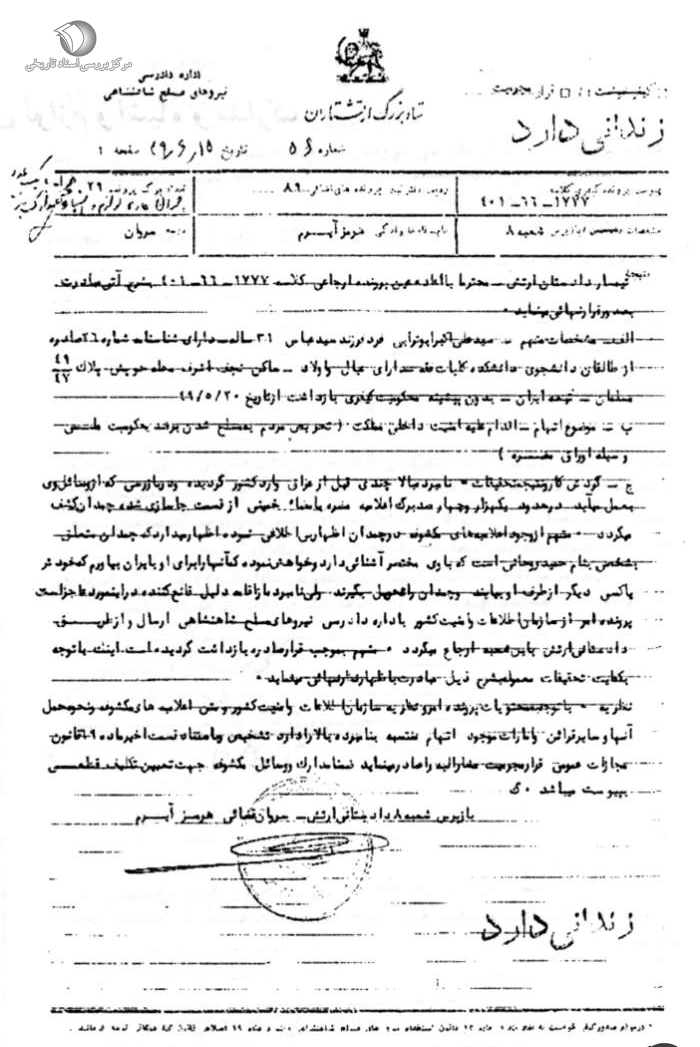 مرکز بررسی اسناد تاریخی
اداره دادرسی
نیروهای مسلح شاهنشاهی
بزرگ ارتشتاران
قرار مجرمیت
زندانی دارد
شماره ۵۶ تاریخ ۴۹٫۶٫۱۵ صفحه ۱
۱۷۷۷-۶۶-۴۰۱
۸۹
شعبه ۸
هرمز آیرم
سروان
تیمسار دادستان ارتش - محترما با اعاده عین پرونده ارجاعی کلاسه ۱۷۷۷-۶۶-۴۰۱ بشرح آتی مبادرت
بصدور قرار نهائی مینماید
الف- مشخصات متهم - سید علی اکبر ابوترابی فرد فرزند سید عباس ۳۱ ساله - دارای شناسنامه شماره ۲۶ صادره
از طالقان دانشجوی دانشکده کلیات فقه دارای عیال و اولاد - ساکن نجف اشرف محله حویش پلاک ۴۹/۴۷
مسلمان - تبعه ایران - بدون پیشینه محکومیت کیفری بازداشت از تاریخ ۴۹/۵/۲۰
ب - موضوع اتهام - اقدام علیه امنیت داخلی مملکت ( تحریص مردم به مسلح شدن بر ضد حکومت ملی
وسیله اوراق مضره )
ج - گردش کار و نتیجه تحقیقات - نامبرده بالا چندی قبل از عراق وارد کشور گردیده و در بازرسی که از وسائل وی
بعمل میآید در حدود یکهزار و چهارصد برگ اعلامیه مضره با امضاء خمینی از قسمت جاسازی شده چمدان کشف
میگردد متهم از وجود اعلامیه های مکشوفه در چمدان اظهار بی اطلاعی نموده اظهار میدارد که چمدان متعلق
بشخصی بنام حمید روحانی است که با وی مختصر آشنائی دارد و خواهش نموده که آنها را برای او بایران بیاورم که خود
یا کس دیگر از طرف او بیایند و چمدان را تحویل بگیرند ولی نامبرده از اقامه دلیل قانع کننده در اینمورد عاجز است
پرونده امر از سازمان اطلاعات و امنیت کشور باداره دادرسی نیروهای مسلح شاهنشاهی ارسال و از طریق
دادستانی ارتش باین شعبه ارجاع میگردد متهم بموجب قرار صادره بازداشت گردیده است. اینک با توجه
بکفایت تحقیقات معموله بشرح ذیل مبادرت باظهار نظر نهائی مینماید
نظریه - با توجه بمحتویات پرونده امر و نظریه سازمان اطلاعات و امنیت کشور و متن اعلامیه های مکشوفه و نحوه حمل
آنها و سایر قرائن و امارات موجود اتهام منتسبه بنامبرده بالا را وارد تشخیص و باستناد قسمت اخیر ماده ۶۹ قانون
مجازات عمومی قرار مجرمیت مشارالیه را صادر مینماید ضمنا مدارک و وسائل مکشوفه جهت تعیین تکلیف قطعی
بپیوست میباشد
بازپرس شعبه ۸ دادستانی ارتش - سروان قضائی هرمز آیرم
زندانی دارد